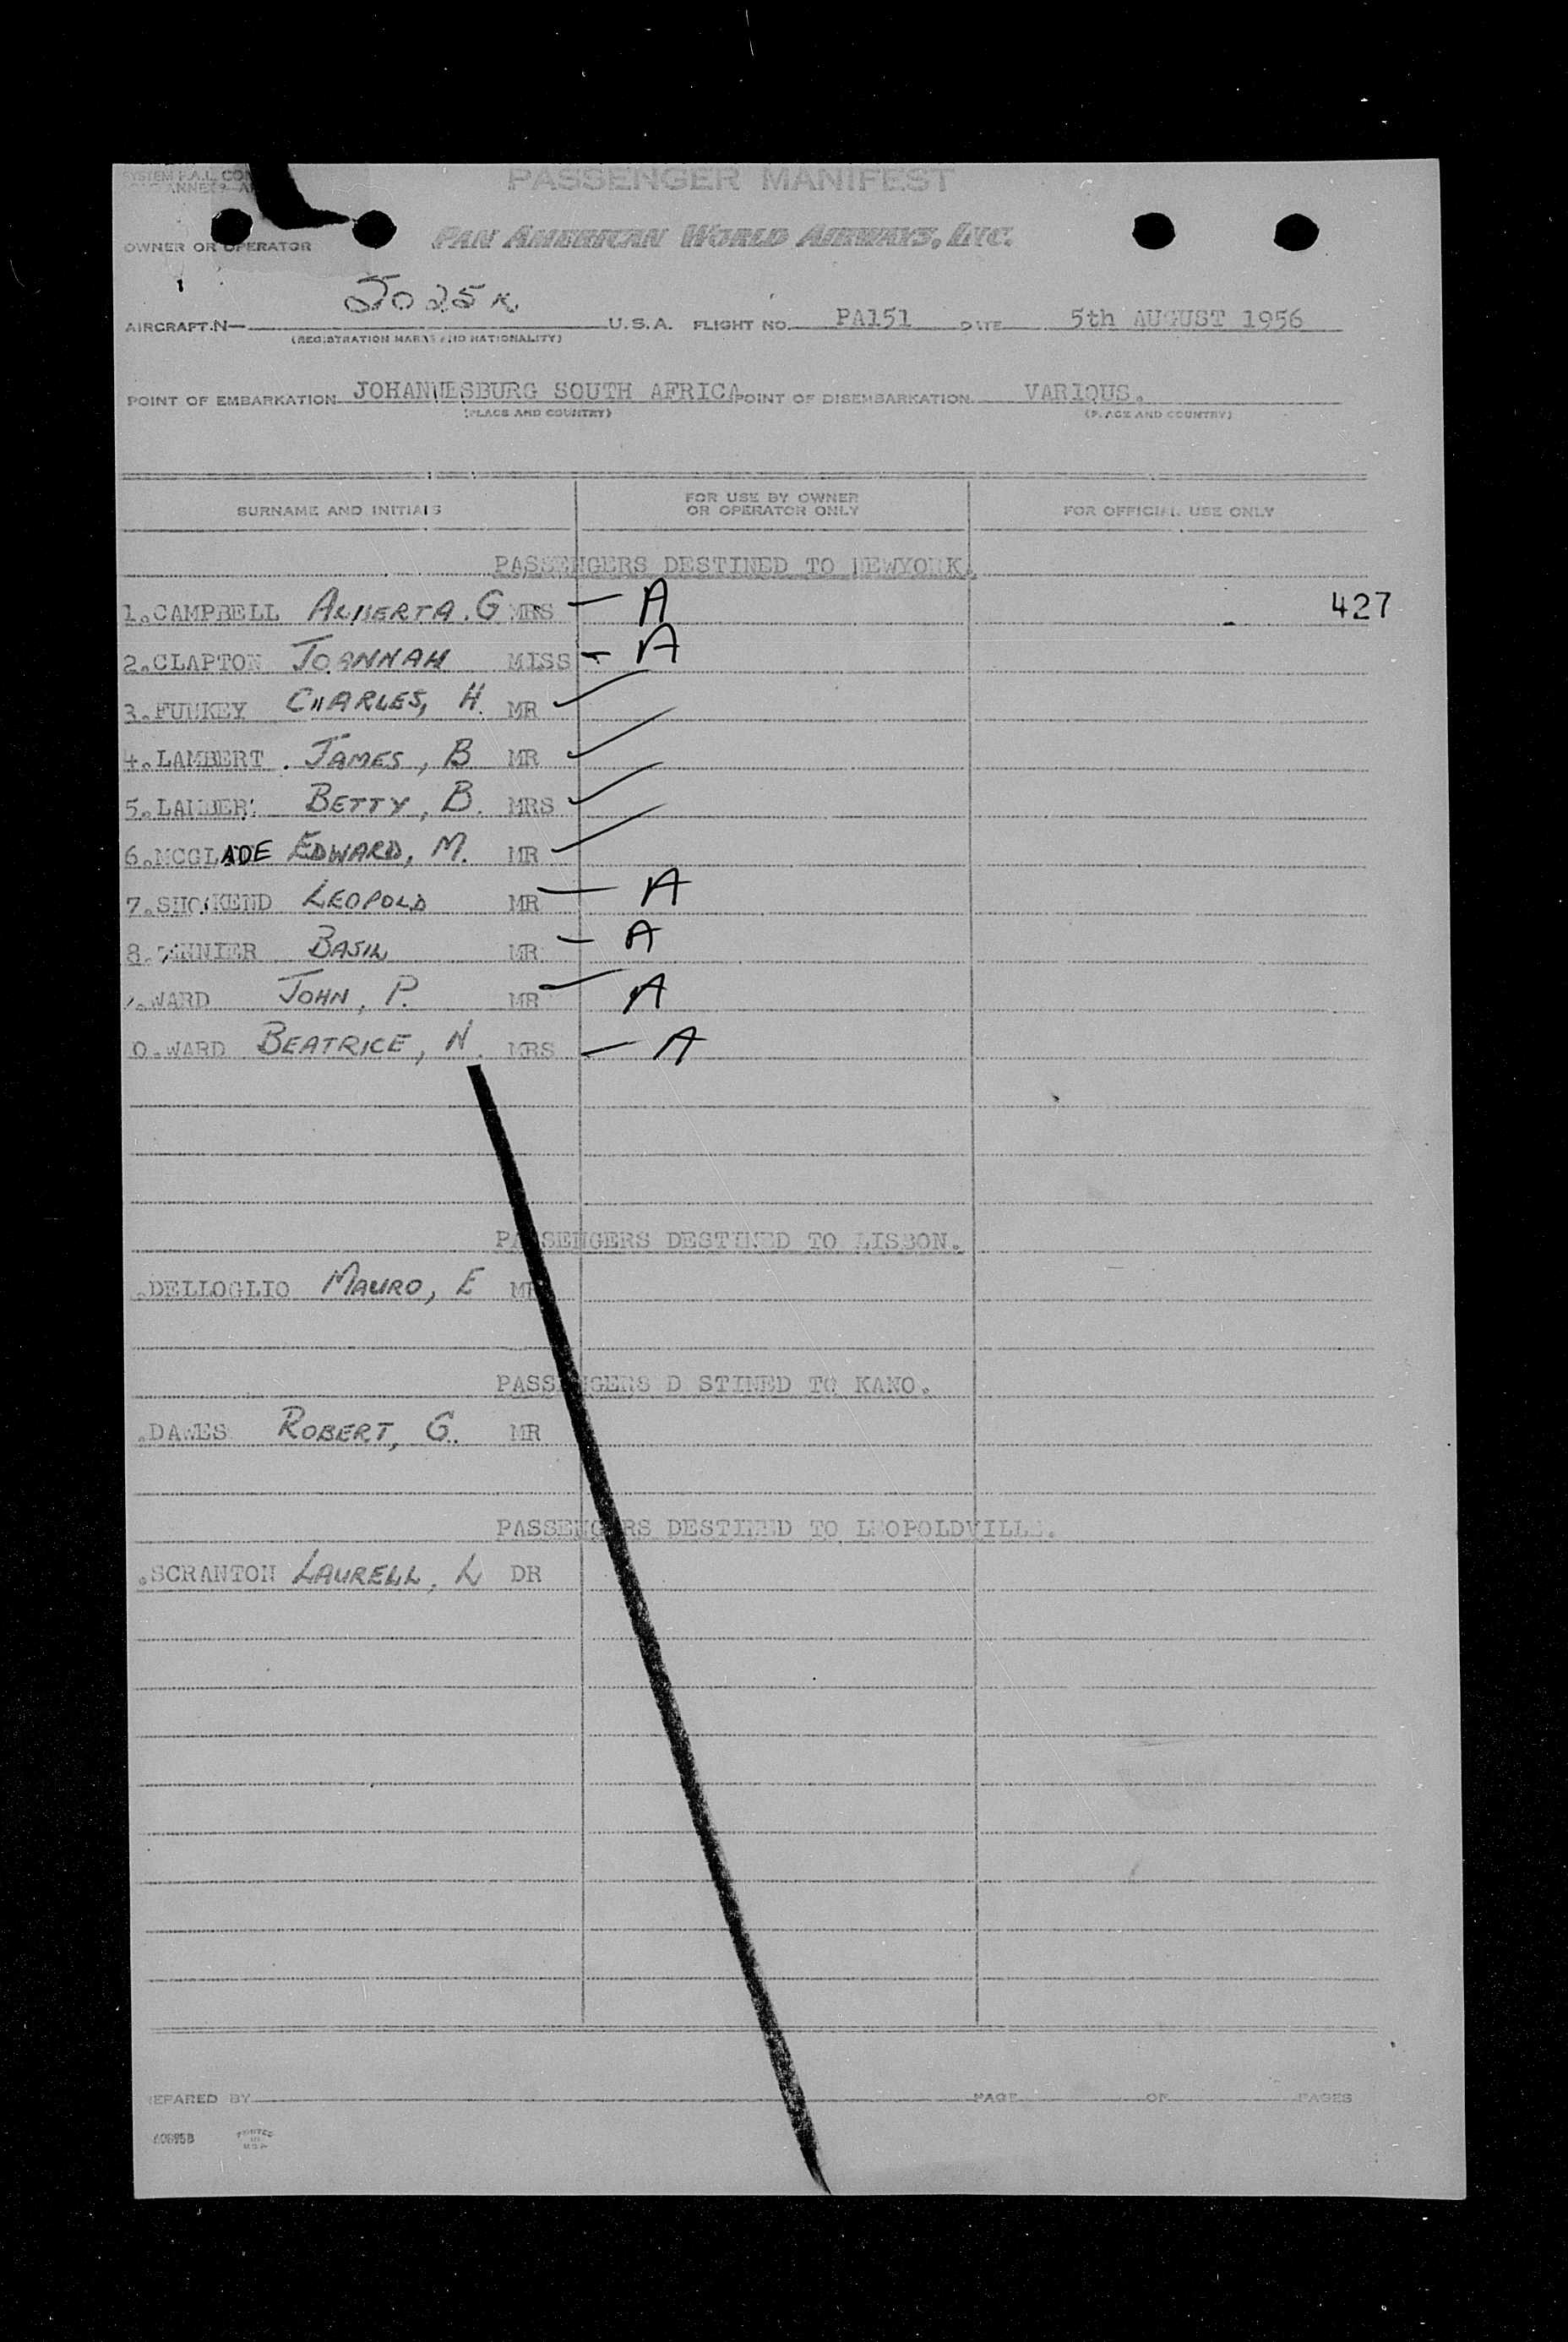 SYSTEM F.A.L. CON
ANNEX 9
PASSENGER MANIFEST
OWNER OR OPERATOR PAN AMERICAN WORLD AIRWAYS, INC.
AIRCRAFT N— U.S.A. FLIGHT NO. PA151 DATE 5th AUGUST 1956
(REGISTRATION MARKS AND NATIONALITY)
POINT OF EMBARKATION JOHANNESBURG SOUTH AFRICA POINT OF DISEMBARKATION VARIOUS.
(PLACE AND COUNTRY) (PLACE AND COUNTRY)
SURNAME AND INITIALS FOR USE BY OWNER OR OPERATOR ONLY FOR OFFICIAL USE ONLY
PASSENGERS DESTINED TO NEWYORK.
1.CAMPBELL ALBERTA.G MRS — A 427
2.CLAPTON JOANNAH MISS - A
3.FUNKEY CHARLES, H. MR ✓
4.LAMBERT. JAMES, B MR ✓
5.LAMBERT BETTY, B. MRS ✓
6.MCGLADE EDWARD, M. MR ✓
7. LEOPOLD MR — A
8. BASIL MR — A
.WARD JOHN, P. MR ✓ A
0.WARD BEATRICE, N. MRS — A
PASSENGERS DESTINED TO LISBON.
.DELLOGLIO MAURO, E MR
PASSENGERS D STINED TO KANO.
.DAWES ROBERT, G. MR
PASSENGERS DESTINED TO LEOPOLDVILLE.
.SCRANTON LAURELL, L DR
EPARED BY PAGE OF PAGES
PRINTED IN U.S.A.